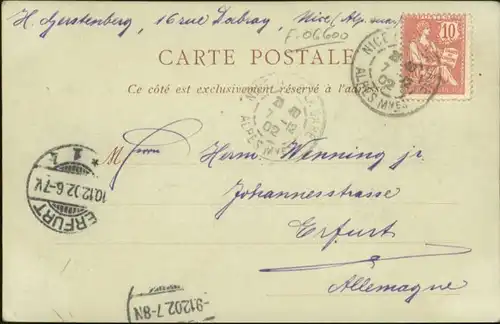 H. Gerstenberg, 16 rue Dabray, Nice (Alp. mar.)
F. 06600
CARTE POSTALE
Ce côté est exclusivement réservé à l'adresse
10
NICE
7
02
ALPES MMES
7
02
ALPES M
M Herrn Herm. Wenning jr.
Johannesstrasse
Erfurt
Allemagne
* 1 l.
10.12.02.6-7V.
ERFURT
-9.12.02.7-8N